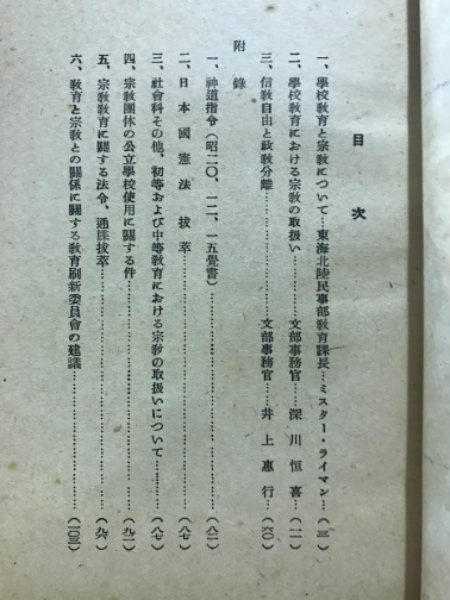 目次
一、學校敎育と宗敎について…東海北陸民事部敎育課長…ミスター・ライマン…(三)
二、學校敎育における宗敎の取扱い……文部事務官…深川恒喜…(一一)
三、信敎自由と政敎分離……文部事務官…井上惠行…(六〇)
附錄
一、神道指令(昭二〇、一二、一五覺書)……(八二)
二、日本國憲法拔萃……(八七)
三、社會科その他、初等および中等敎育における宗敎の取扱いについて……(八七)
四、宗敎團体の公立學校使用に關する件……(九二)
五、宗敎敎育に關する法令、通牒拔萃……(九六)
六、敎育と宗敎との關係に關する敎育刷新委員會の建議……(一〇三)